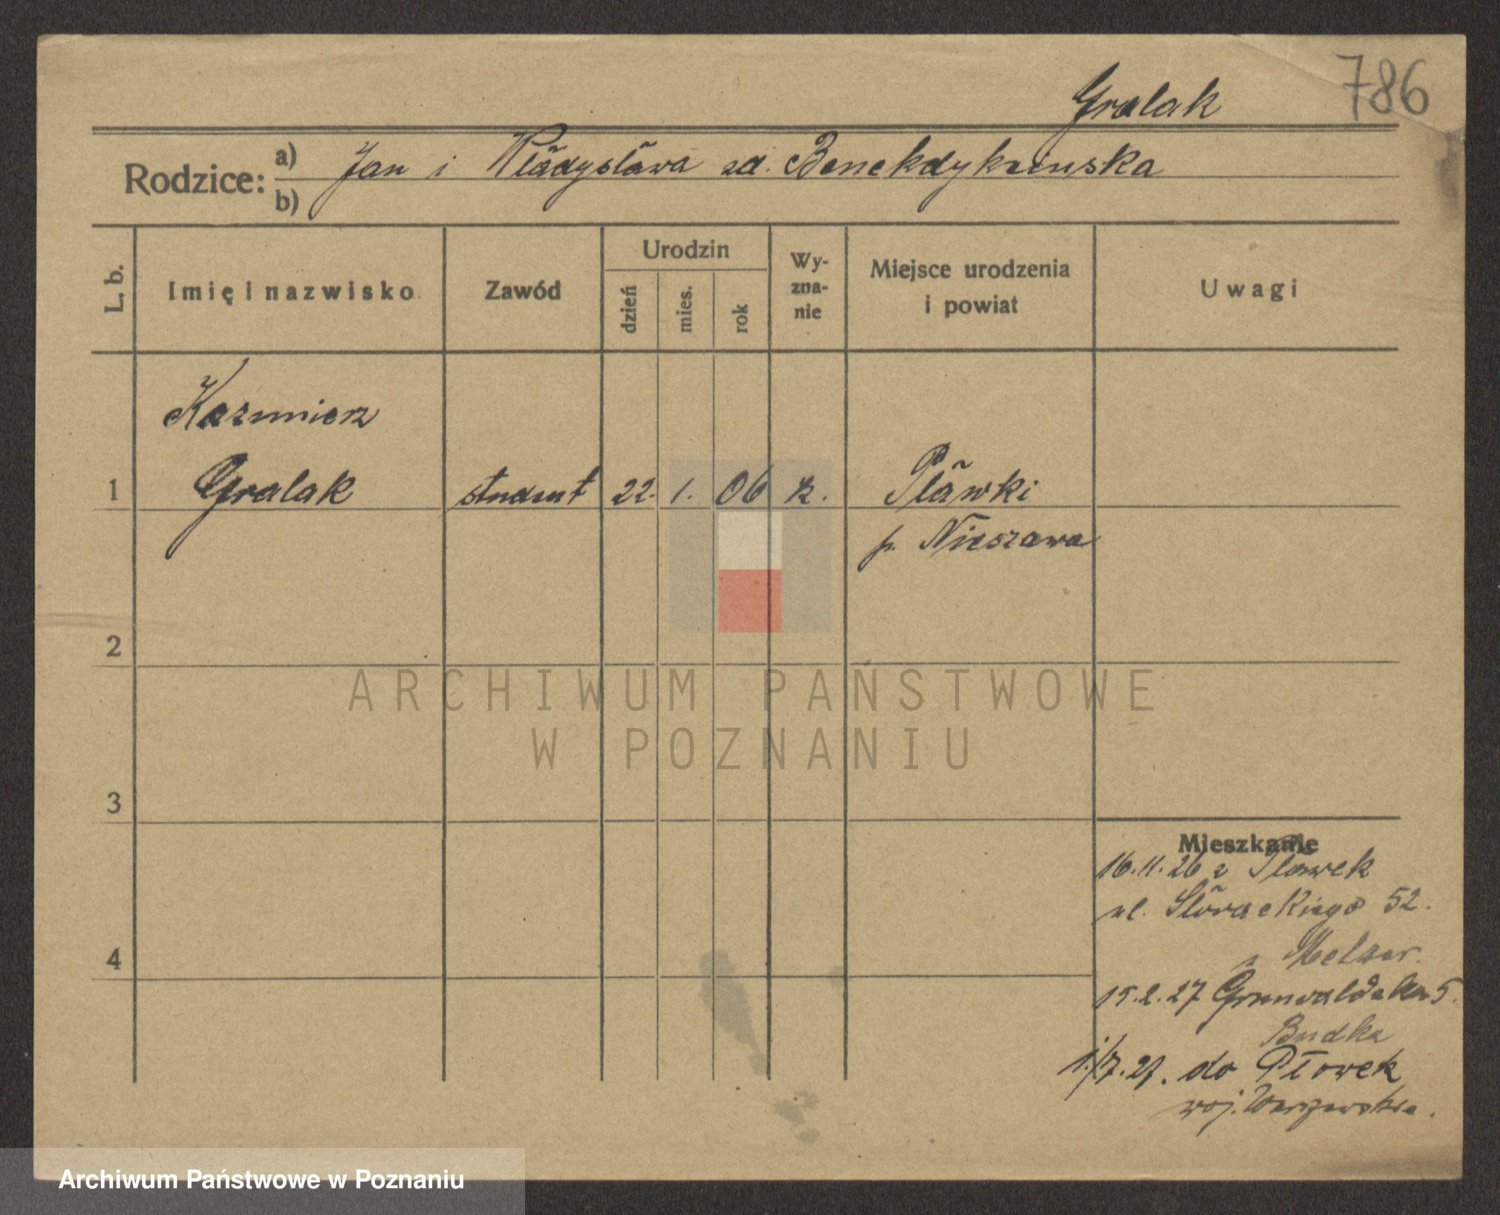 786
Gralak
Rodzice: a) Jan i Władysława zd. Benekdykcinska
b)
L. b.
Imię i nazwisko
Zawód
Urodzin
dzień
mies.
rok
Wy-
zna-
nie
Miejsce urodzenia
i powiat
Uwagi
Kazimierz
1 Gralak student 22. 1. 06 k. Pławki
p. Nieszawa
2
ARCHIWUM PAŃSTWOWE
W POZNANIU
3
Mieszkanie
16.11.26 z Pławek
ul. Słowackiego 52.
Melzer.
15.2.27 Grunwaldzka 5.
Budka
4
1/7.27. do Płowek
woj. Warszawskie.
Archiwum Państwowe w Poznaniu